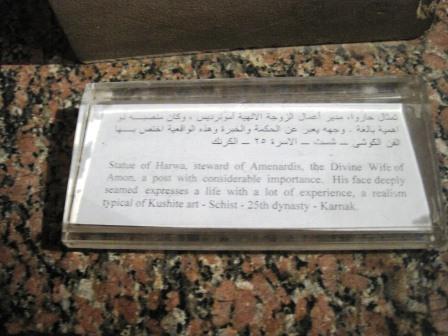 تمثال حاروا، مدير أعمال الزوجة الالهية أمونرديس ، وكان منصبـــه ذو
اهمية بالغة . وجهه يعبر عن الحكمة والخبرة وهذه الواقعية اختص بـــها
الفن الكوشى ــ شست ــ الاسرة ٢٥ ــ الكرنك
Statue of Harwa, steward of Amenardis, the Divine Wife of
Amon, a post with considerable importance. His face deeply
seamed expresses a life with a lot of experience, a realism
typical of Kushite art - Schist - 25th dynasty - Karnak.